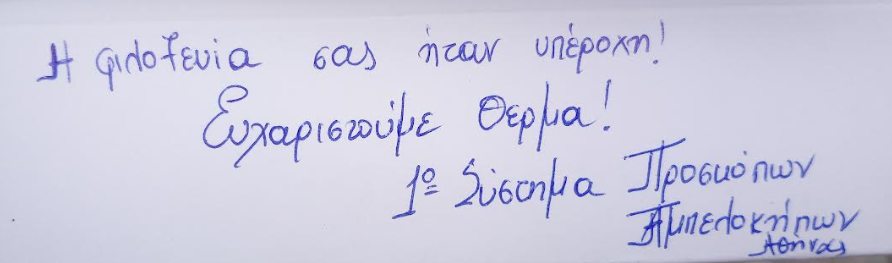 Η φιλοξενία σας ήταν υπέροχη!
Ευχαριστούμε θερμά!
1º Σύστημα Προσκόπων
Αμπελοκήπων
Αθήνας